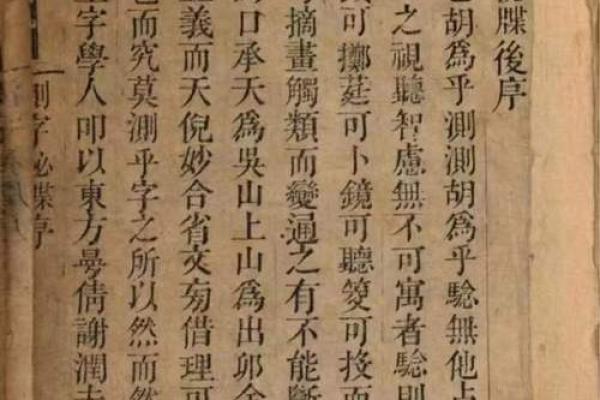 牒後序
也胡為乎測測胡為乎驗無他占
之視聽智慮無不可寓者驗則
可擲莛可卜鏡可聽筊可投而
摘畫觸類而變通之有不能斷
口承天為吳山上山為出卯金
義而天倪妙合省文旁借理可
而究莫測乎字之所以然而然
字學人叩以東方曼倩謝潤夫
測字秘牒序